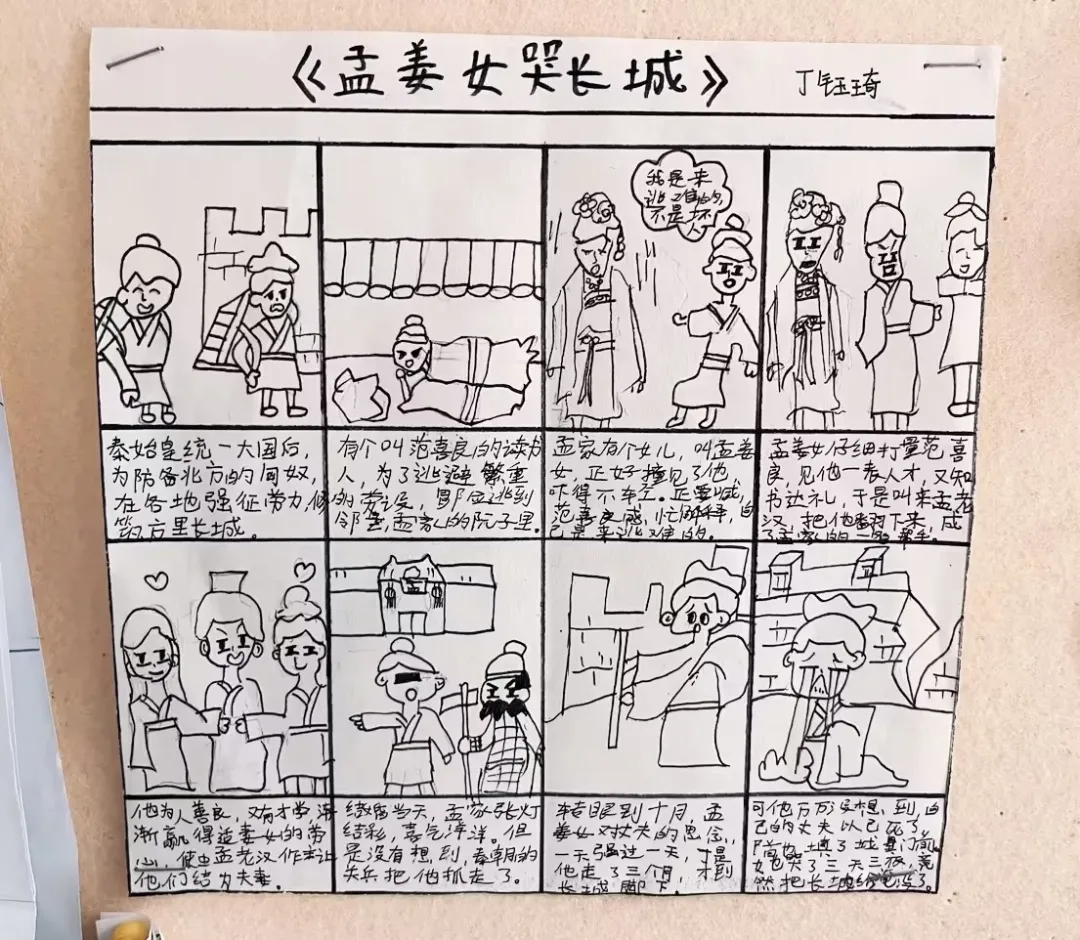 《孟姜女哭长城》
丁钰琦
秦始皇统一大国后,
为防备北方的匈奴,
在各地强征劳力,修
筑万里长城。
有个叫范喜良的读书
人,为了逃避繁重
的劳役,
邻 孟家的院子里。
我是来
逃难的,
不是坏
人
孟家有个女儿,叫孟姜
女,正好撞见了他,
吓得不轻。正要喊,
范喜良 忙解释,自
己是来逃难的。
孟姜女仔细打量范喜
良,见他一表人才,又知
书达礼,于是叫来孟老
汉 把他 下来,成
了孟家的一
他为人善良,又有才学,渐
渐赢得孟姜女的芳
心,便由孟老汉作主让
他们结为夫妻。
孟
结婚当天,孟家张灯
结彩,喜气洋洋。但
是没有想到,秦朝的
兵把他抓走了。
转眼到十月,孟
姜女对丈夫的思念,
一天强过一天,于是
他走了三个月,才到
长城脚下。
可他万万没想到,自
己的丈夫以已死了,
城墙
她哭了三天三夜,竟
然把长城 了。